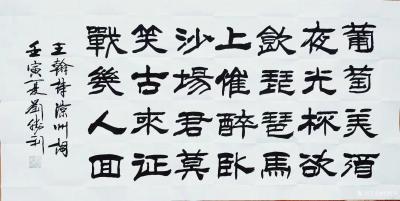 葡萄美酒
夜光杯欲
飲琵琶馬
上催醉臥
沙場君莫
笑古來征
戰幾人回
王翰詩涼州詞
壬寅夏劉勝利